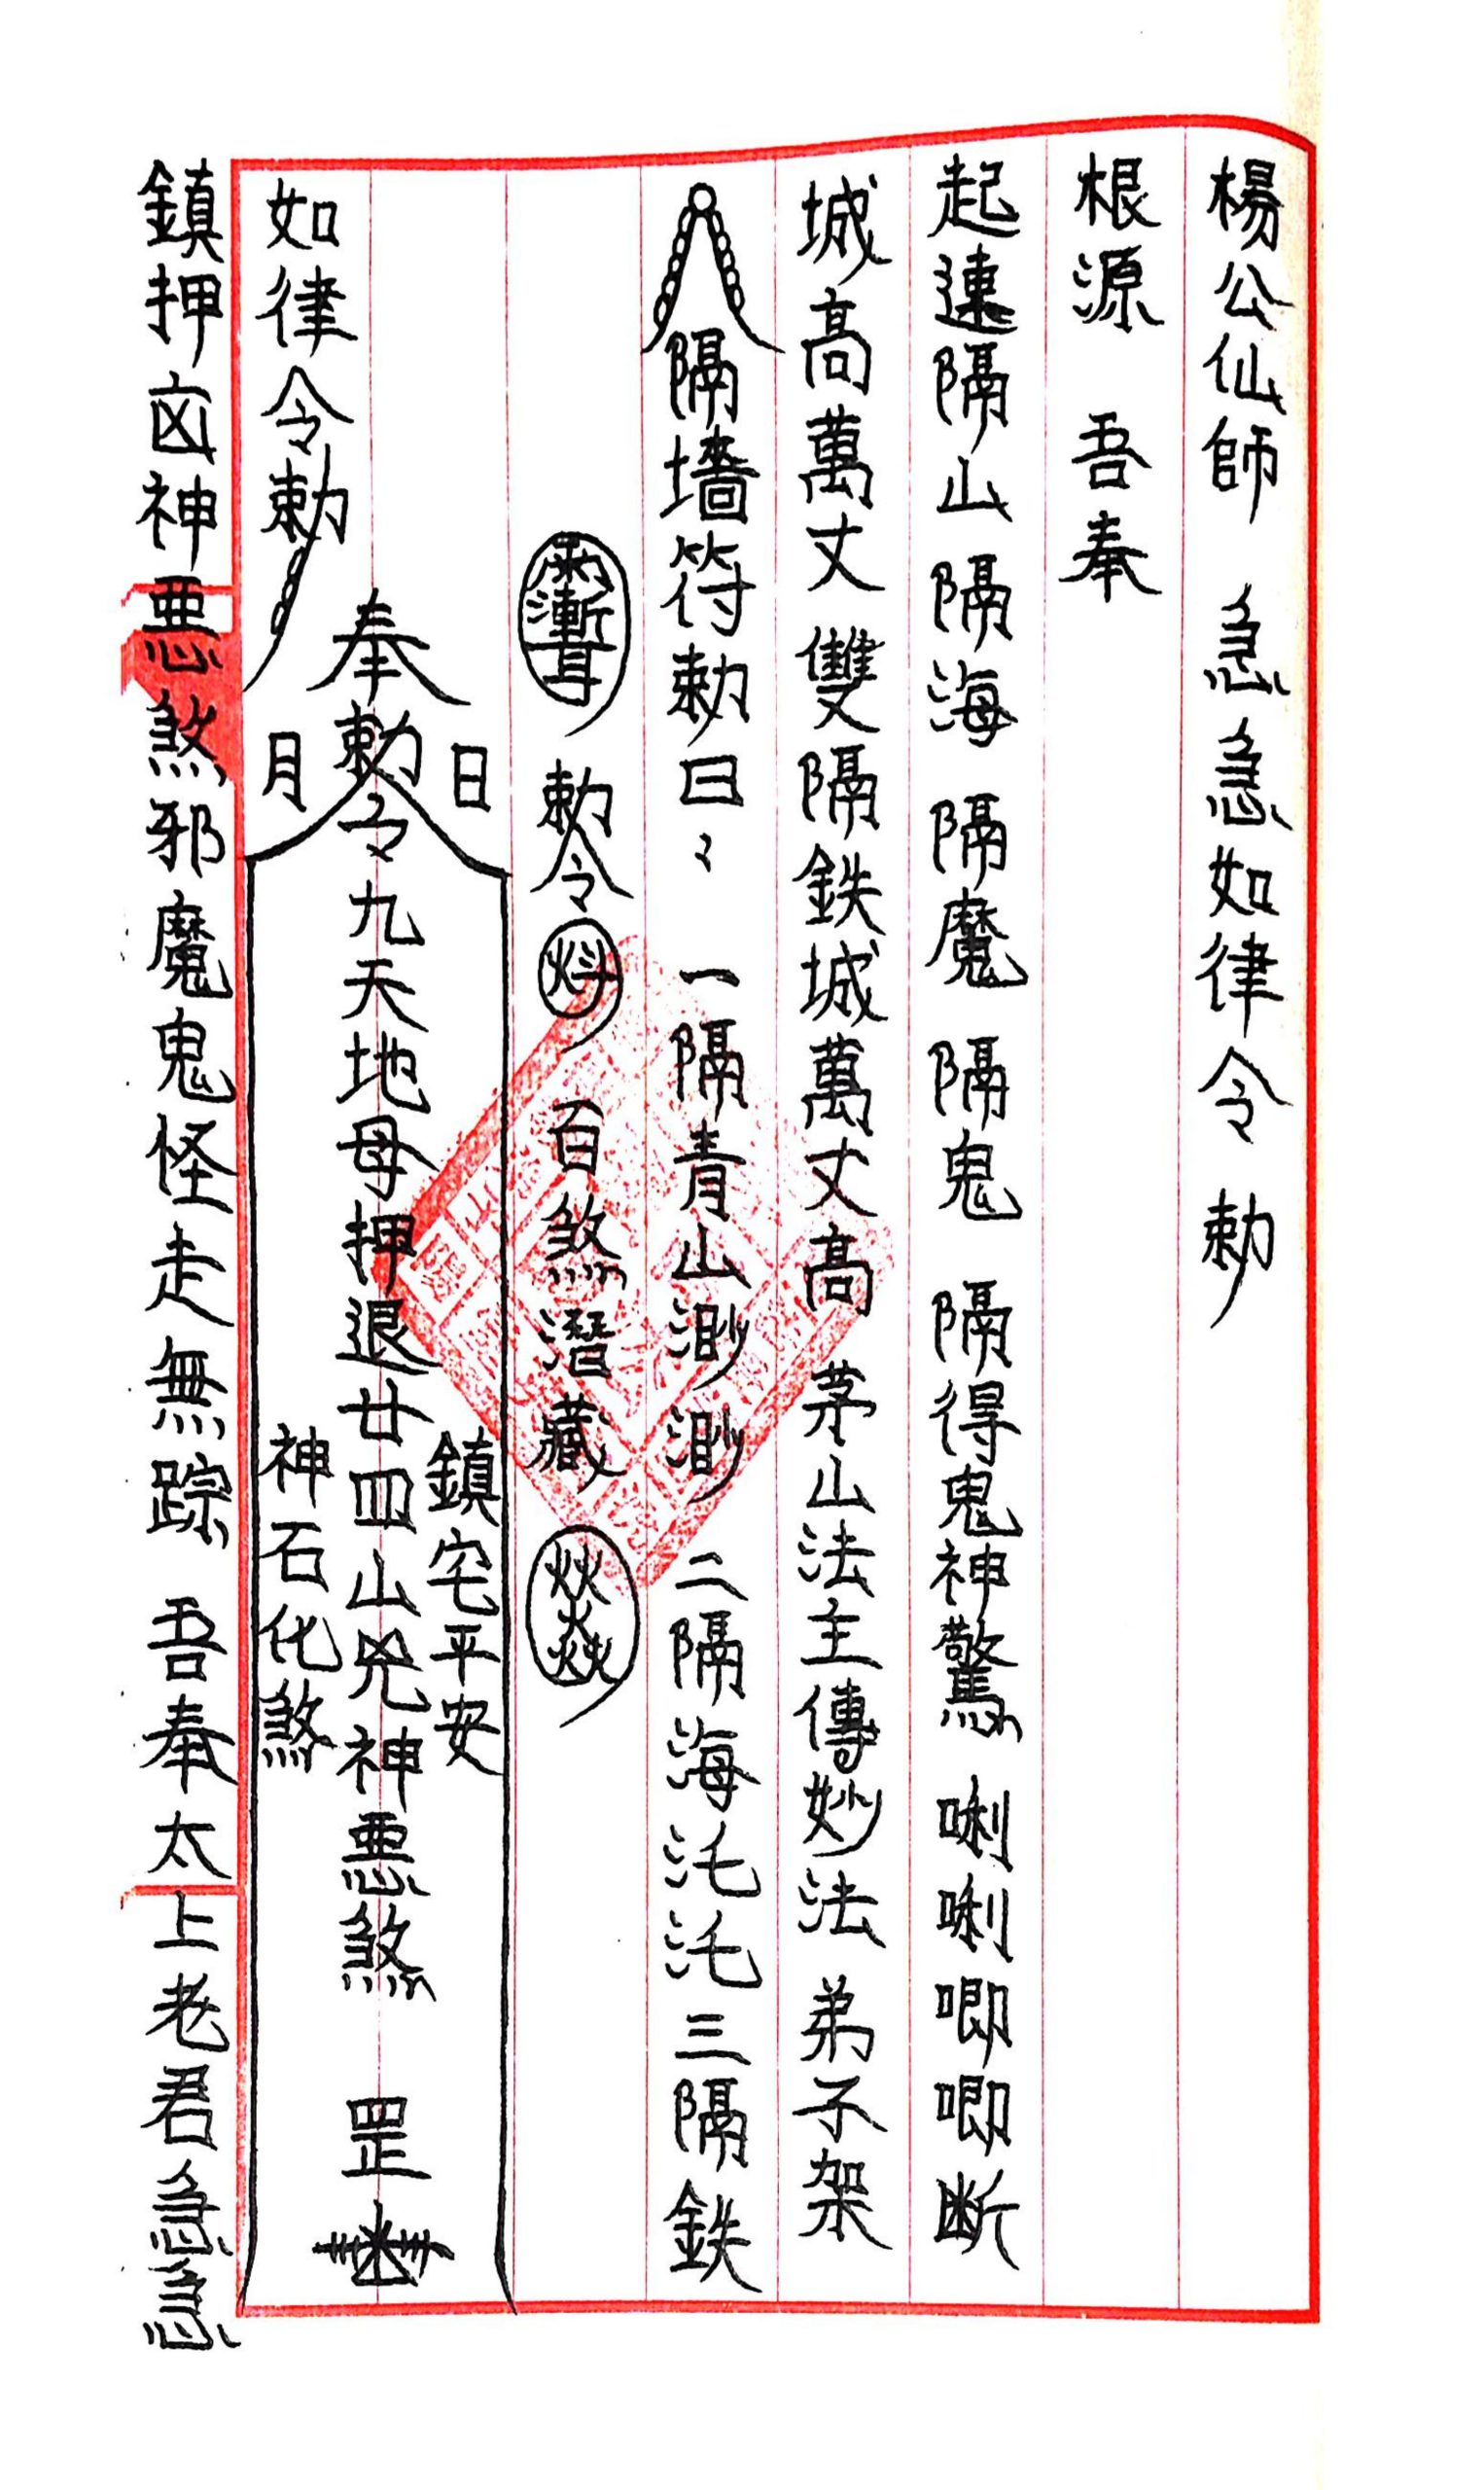 楊公仙師　急急如律令　勅
根源　吾奉
起連隔山　隔海　隔魔　隔鬼　隔得鬼神驚　唎唎唧唧断
城高萬丈　雙隔鉄城萬丈高　茅山法主傳妙法　弟子架
隔墻符勅曰〻　一隔青山渺渺　二隔海汑汑三隔鉄
勅令　百煞潛藏
日
月
奉勅令九天地母押退廿四山兇神悪煞　罡
鎮宅平安
神石化煞
如律令勅
鎮押凶神悪煞邪魔鬼怪走無踪　吾奉太上老君急急